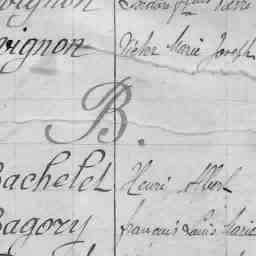 vignon
vignon Victor Marie Joseph
B.
Bachelet Henri Albert
Bagory françois Louis Marie